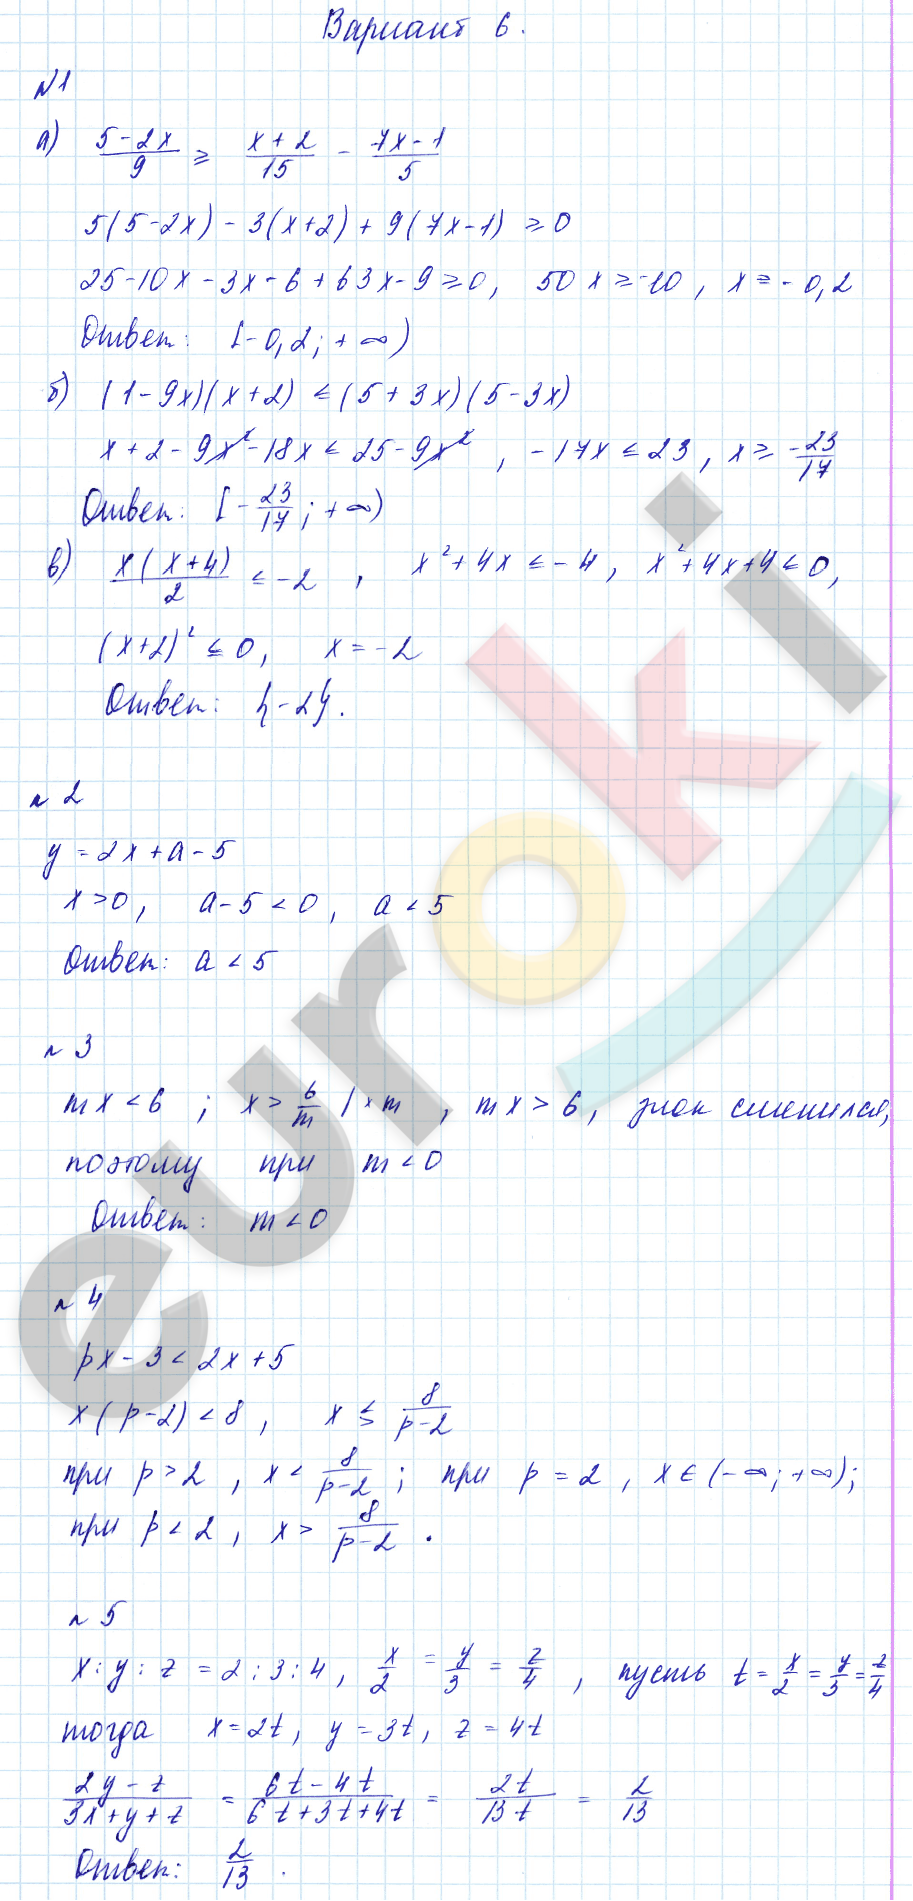 Вариант 6.
№1
а) (5-2x)/9 ≥ (x+2)/15 - (7x-1)/5
5(5-2x) - 3(x+2) + 9(7x-1) ≥ 0
25-10x-3x-6+63x-9 ≥ 0, 50x ≥ -10, x ≥ -0,2
Ответ: [-0,2; +∞)
б) (1-9x)(x+2) ≤ (5+3x)(5-3x)
x+2-9x²-18x ≤ 25-9x², -17x ≤ 23, x ≥ -23/17
Ответ: [-23/17; +∞)
в) x(x+4)/2 ≤ -2, x²+4x ≤ -4, x²+4x+4 ≤ 0,
(x+2)² ≤ 0, x = -2
Ответ: {-2}.
№2
y = 2x+a-5
x>0, a-5<0, a<5
Ответ: a<5
№3
mx<6; x > 6/m |×m, mx>6, знак сменился,
поэтому при m<0
Ответ: m<0
№4
px-3 < 2x+5
x(p-2) < 8, x ≶ 8/(p-2)
при p>2, x < 8/(p-2); при p=2, x∈(-∞; +∞);
при p<2, x > 8/(p-2).
№5
x:y:z = 2:3:4, x/2 = y/3 = z/4, пусть t = x/2 = y/3 = z/4
тогда x=2t, y=3t, z=4t
(2y-z)/(3x+y+z) = (6t-4t)/(6t+3t+4t) = 2t/13t = 2/13
Ответ: 2/13.
euroki